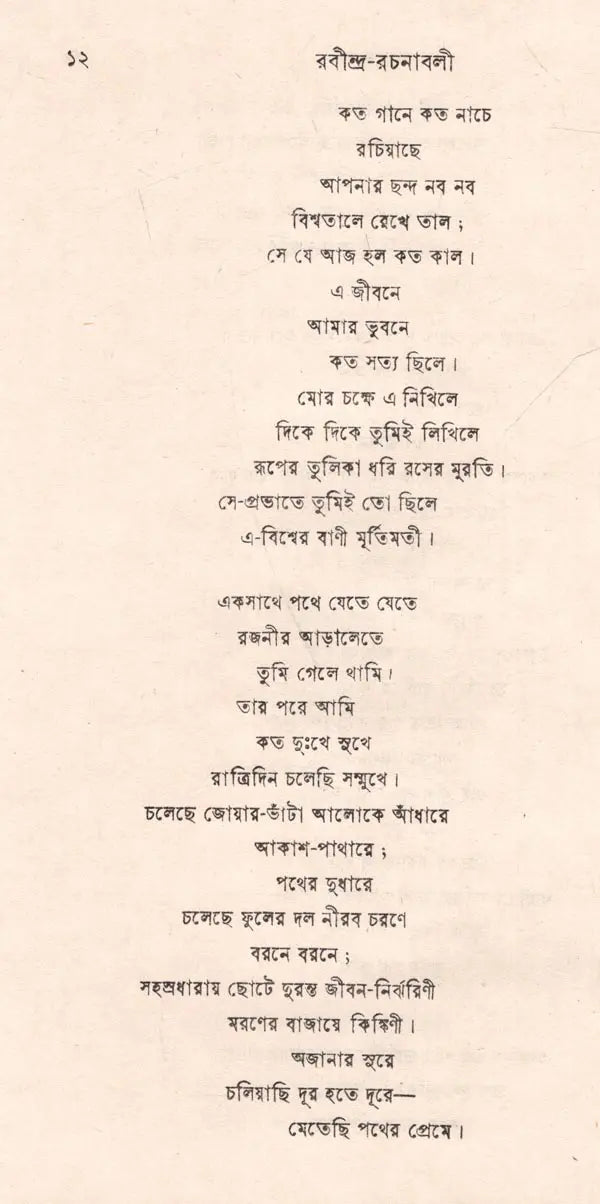 ১২ রবীন্দ্র-রচনাবলী
কত গানে কত নাচে
রচিয়াছে
আপনার ছন্দ নব নব
বিশ্বতালে রেখে তাল ;
সে যে আজ হল কত কাল ।
এ জীবনে
আমার ভুবনে
কত সত্য ছিলে ।
মোর চক্ষে এ নিখিলে
দিকে দিকে তুমিই লিখিলে
রূপের তুলিকা ধরি রসের মুরতি ।
সে-প্রভাতে তুমিই তো ছিলে
এ-বিশ্বের বাণী মূর্তিমতী ।
একসাথে পথে যেতে যেতে
রজনীর আড়ালেতে
তুমি গেলে থামি ।
তার পরে আমি
কত দুঃখে সুখে
রাত্রিদিন চলেছি সম্মুখে ।
চলেছে জোয়ার-ভাঁটা আলোকে আঁধারে
আকাশ-পাথারে ;
পথের দুধারে
চলেছে ফুলের দল নীরব চরণে
বরনে বরনে ;
সহস্রধারায় ছোটে দুরন্ত জীবন-নির্ঝরিণী
মরণের বাজায়ে কিঙ্কিণী ।
অজানার সুরে
চলিয়াছি দূর হতে দূরে—
মেতেছি পথের প্রেমে ।